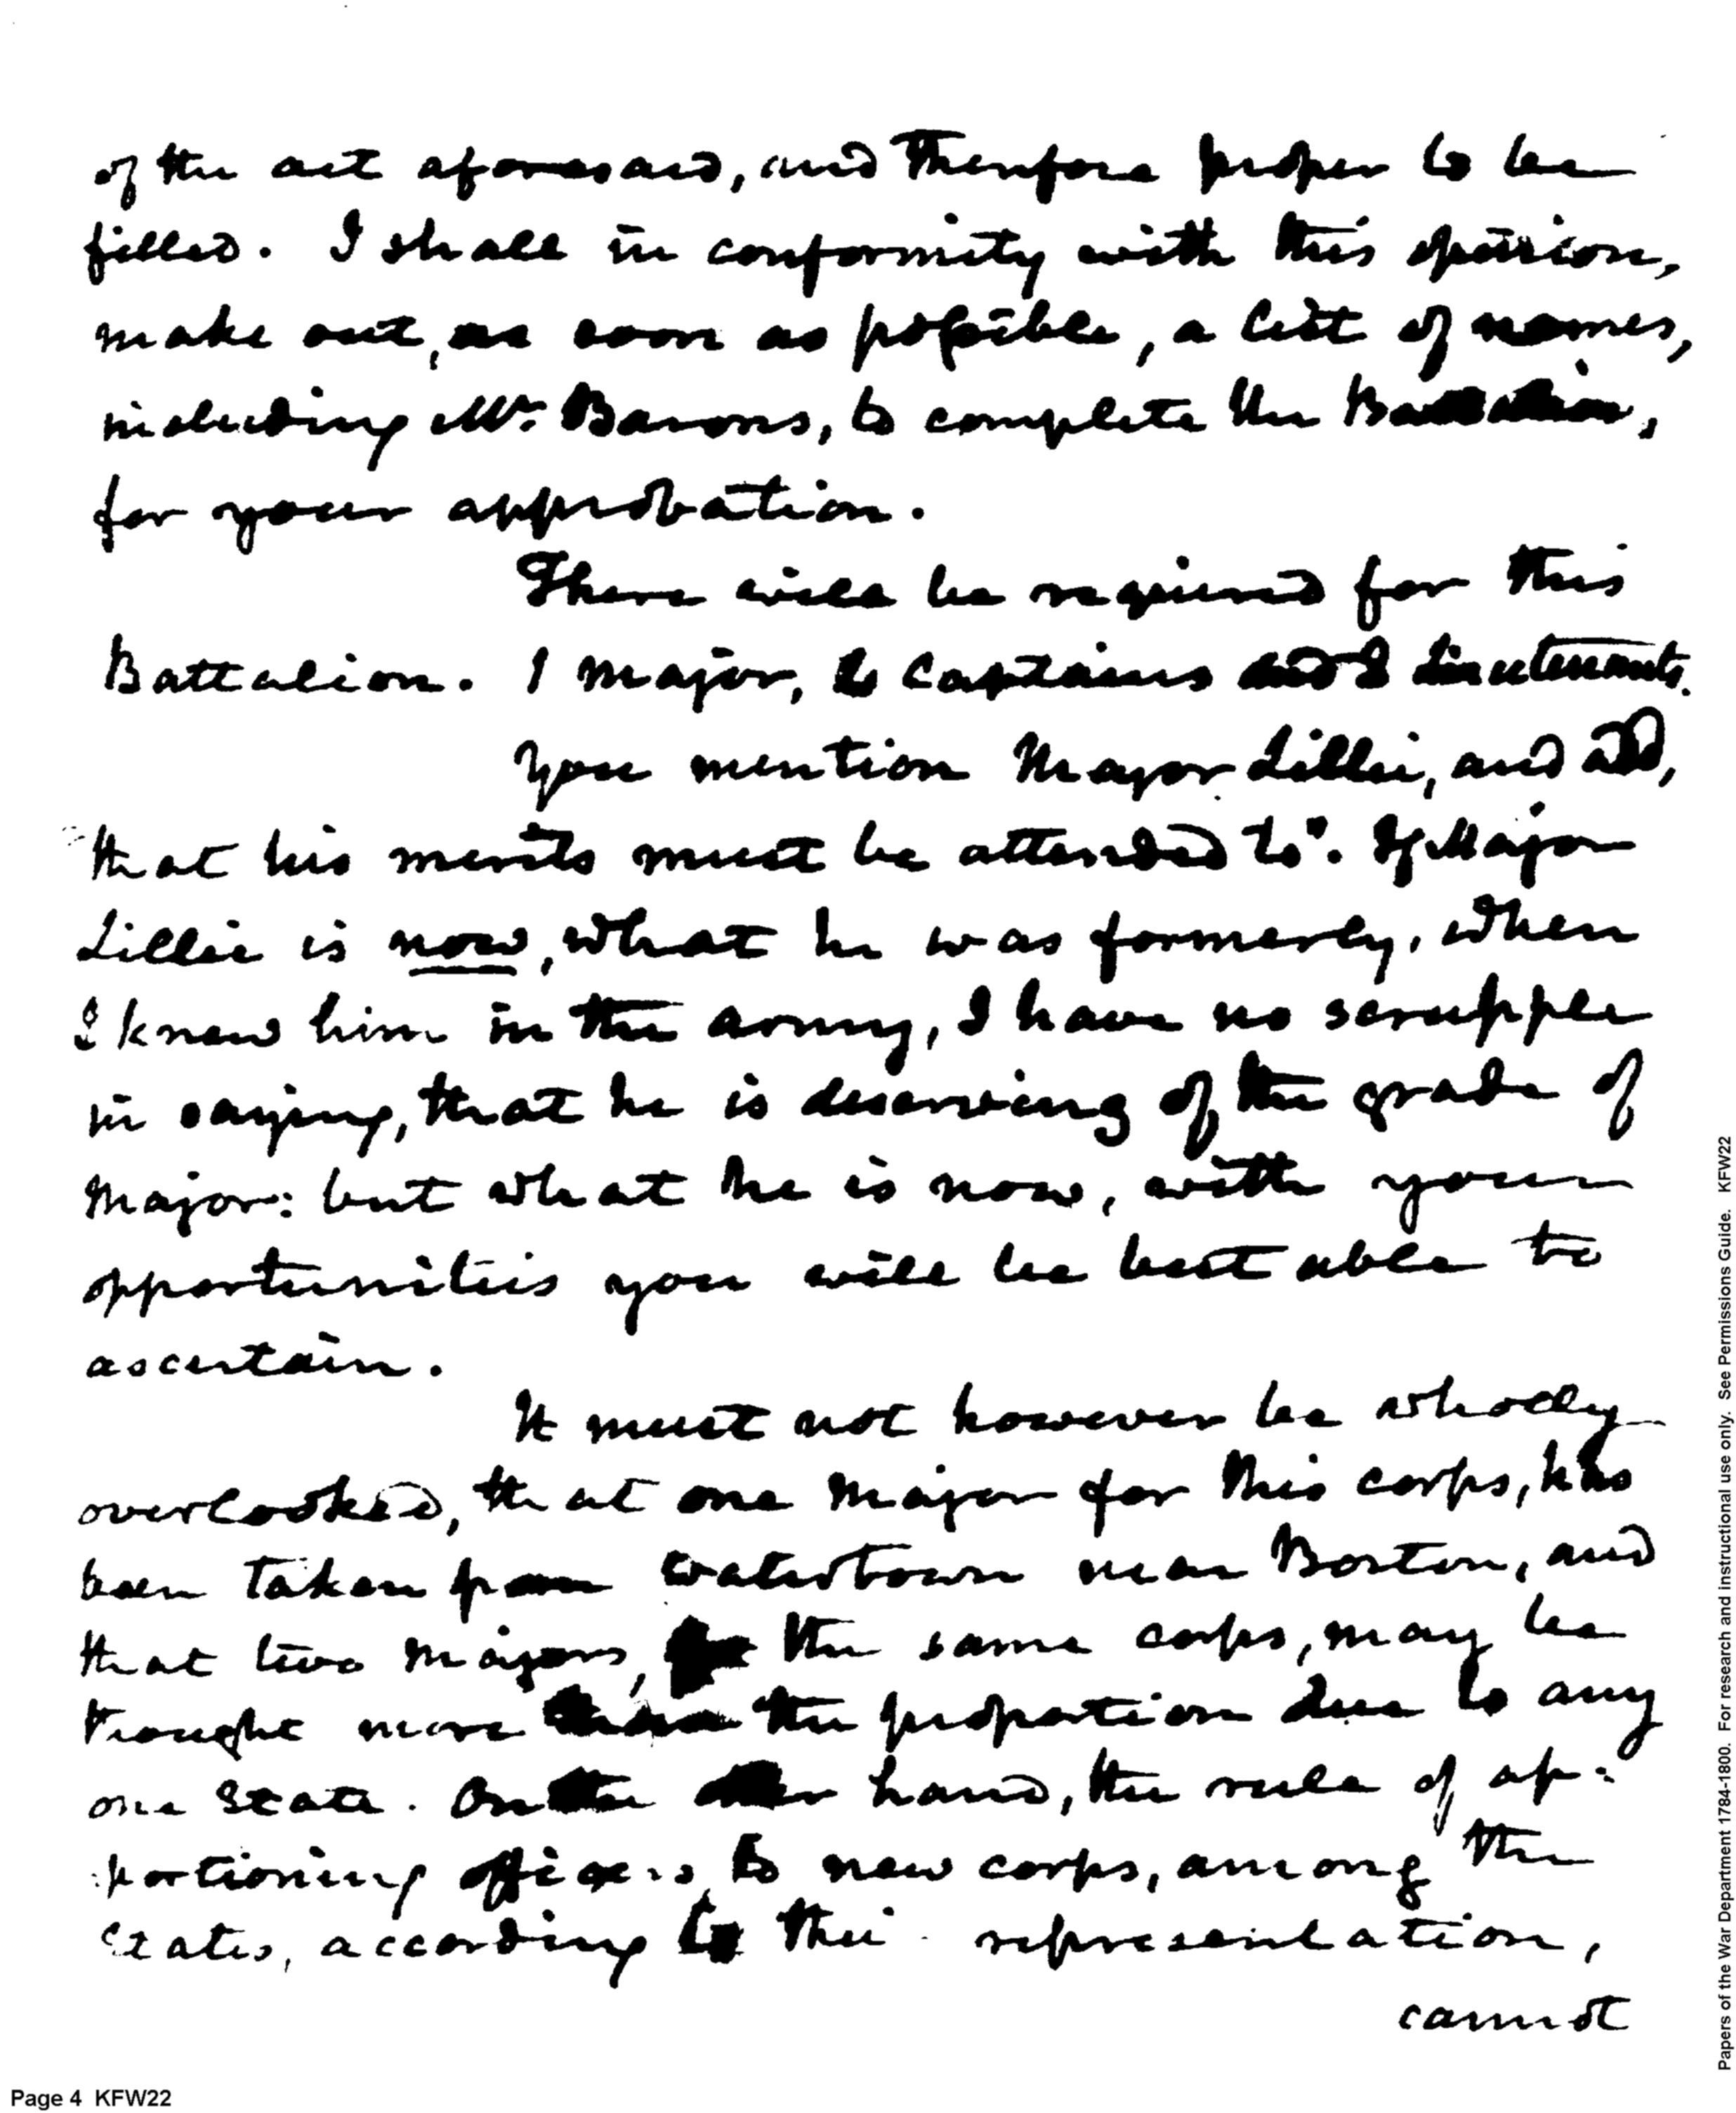 of the act aforesaid, and Therefore proper to be
filled. I shall in conformity with this opinion,
make out, as soon as possible, a list of names,
including Mr. Barons, to complete the Battalion,
for your approbation.
There will be required for this
Battalion. 1 Major, Captains and 2 Lieutenants.
You mention Major Lillie, and add,
that his merits must be attended to". If Major
Lillie is now, what he was formerly, when
I knew him in the army, I have no scrupple
in saying, that he is deserving of the grade of
Major: but what he is now, with your
opportunities you will be best able to
ascertain.
It must not however be wholly
overlooked, that one Major for this corps, has
been taken from Watertown near Boston, and
that two majors, the same corps, may be
thought more than the proportion due to any
one State. On the other hand, the rule of ap:
:portioning officers to new corps, among the
States, according to their representation,
cannot
Page 4 KFW22
Papers of the War Department 1784-1800. For research and instructional use only. See Permissions Guide. KFW22